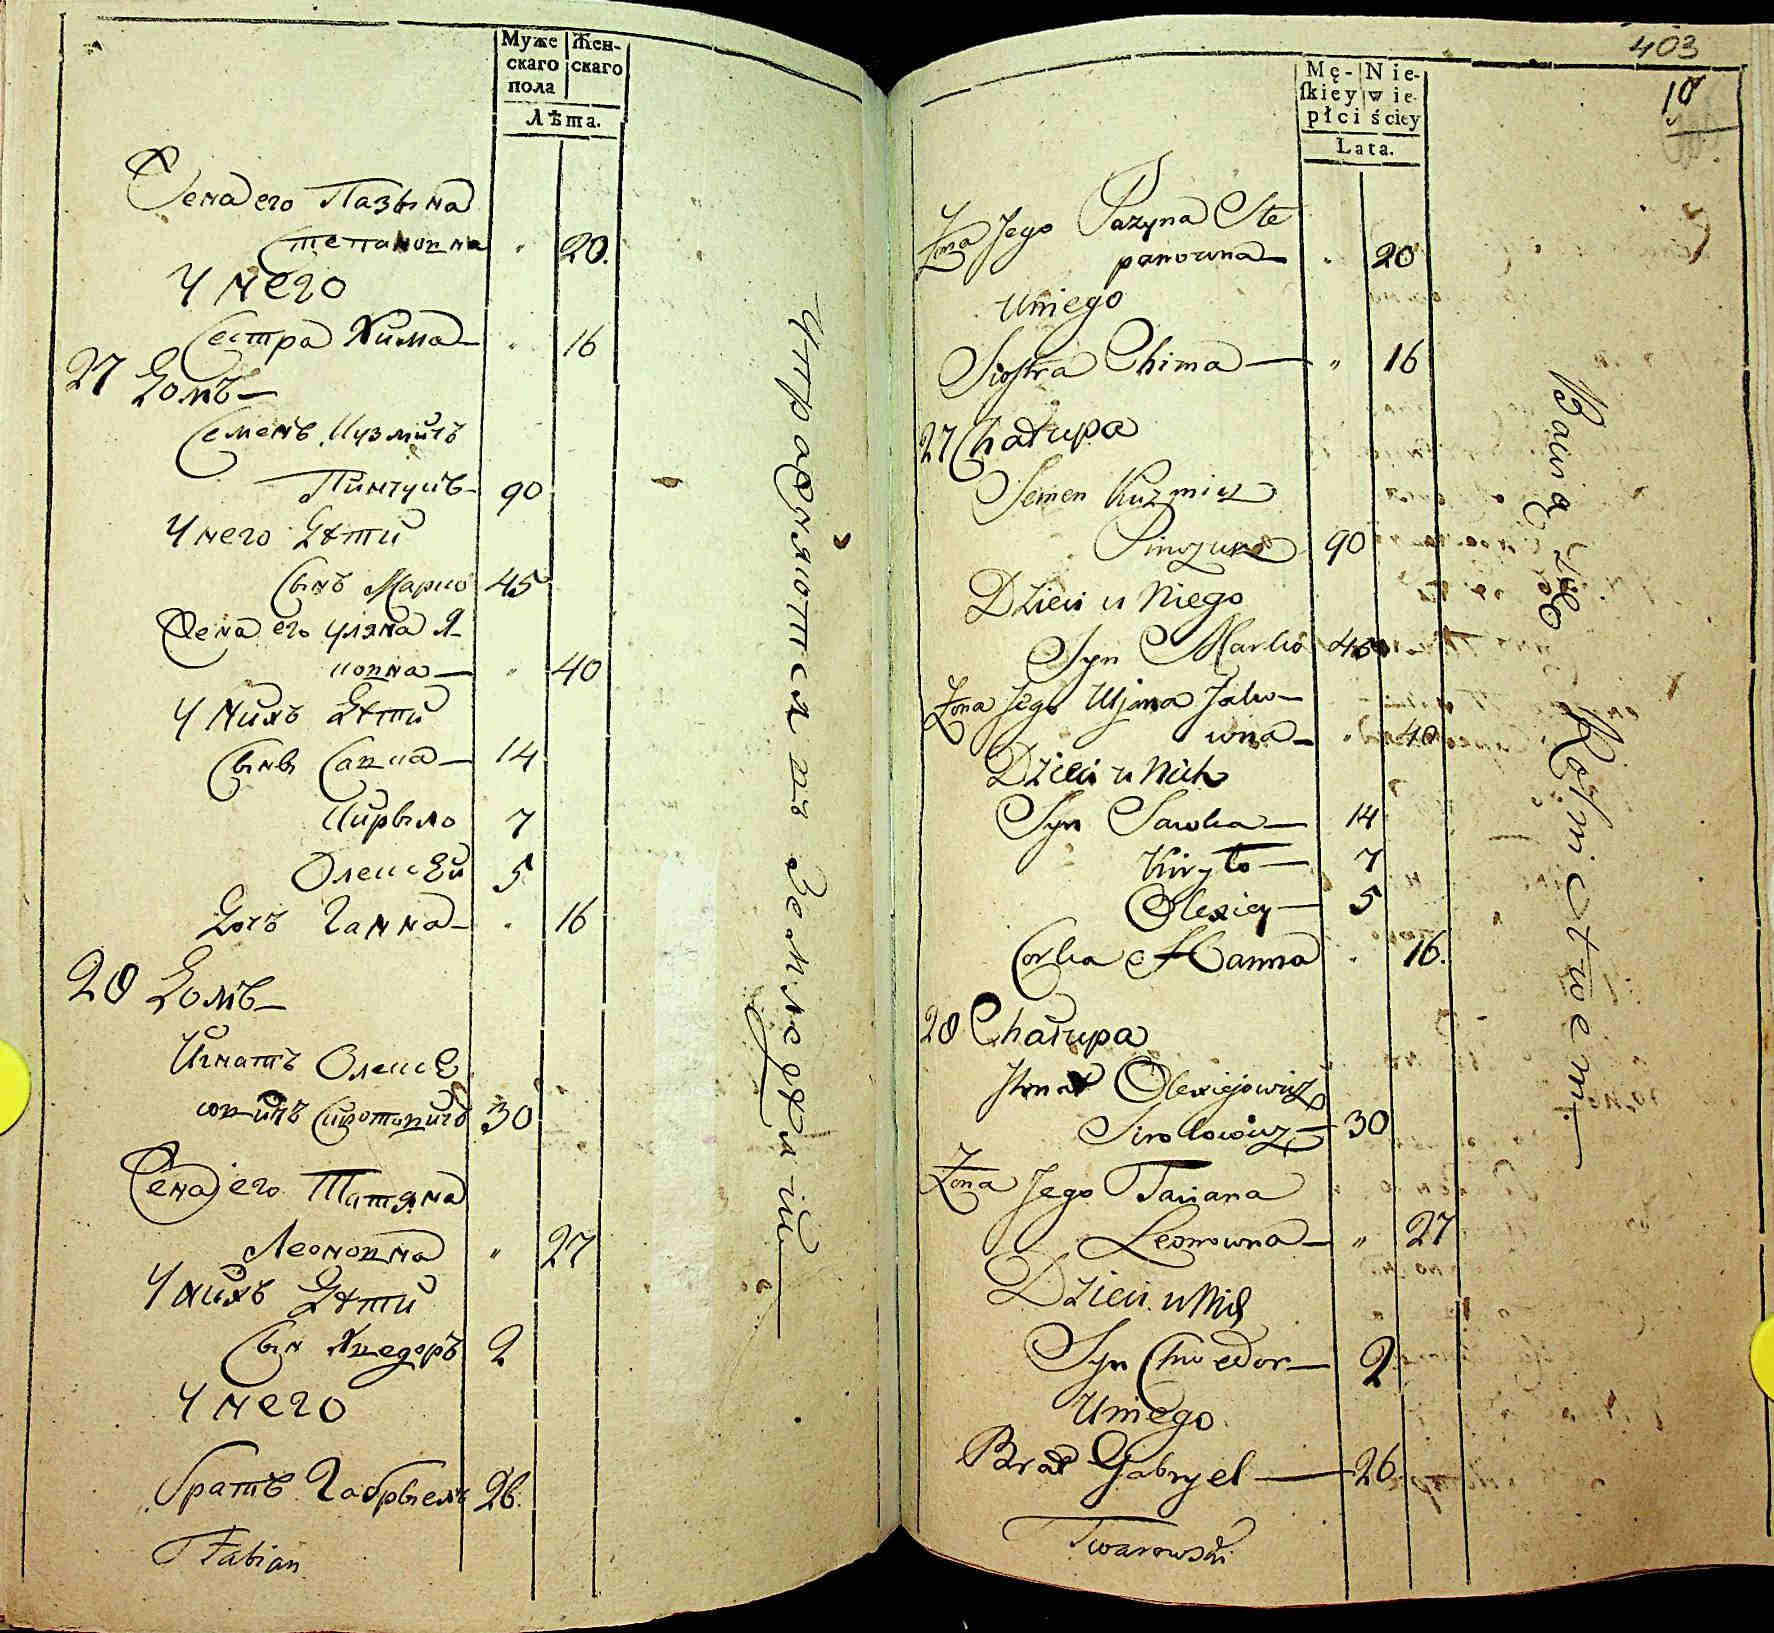 Муже
скаго
пола
Жен-
скаго
Лѣта.
Жена его Пазына
Степановна " 20.
У него
Сестра Хима — " 16
27 Домъ —
Семенъ Кузмичъ
Пинчукъ — 90
У него Дѣти
Сынъ Марко 45
Жена его Уляна Я-
ковна — " 40
У нихъ Дѣти
Сынъ Савка — 14
Кирыло 7
Олексѣй 5
Дочъ Ганна — " 16
28 Домъ —
Игнатъ Олексѣ
ювичъ Сиротовичъ 30
Жена его Татяна
Леоновна " 27
У нихъ Дѣти
Сын Хведоръ 2
У него
братъ Габрыель 26.
Fabian
Упражняются въ Земледѣліи —
403
10
Mę-
skiey
płci
Nie-
wie-
ściey
Lata.
Żona Jego Pazyna Ste
panowna — " 20
u niego
Siostra Chima — " 16
27 Chałupa
Semen Kuzmicz
Pinczuk 90
Dzieci u Niego
Syn Marko 45
Żona Jego Uljana Jako-
wna — " 40
Dzieci u Nich
Syn Sawka — 14
Kiryło — 7
Olexiey — 5
Corka Hanna " 16.
28 Chałupa
Ihnat Olexiejowicz
Sirotowicz — 30
Żona Jego Taciana
Leonowna — " 27
Dzieci u Nich
Syn Chwedor — 2
U niego
Brat Gabryel — 26
Twarowski
Bawią się Rolnictwem. —